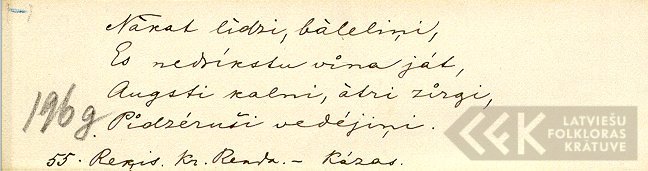 Nākat līdzi, bāleliņi,
Es nedrīkstu viņa jāt,
Augsti kalni, ātri zirgi,
Pidzēruši vedējiņi.
1969
55. Reņis. Kr. Renda. – Kāzas.
LATVIEŠU
FOLKLORAS
KRĀTUVE